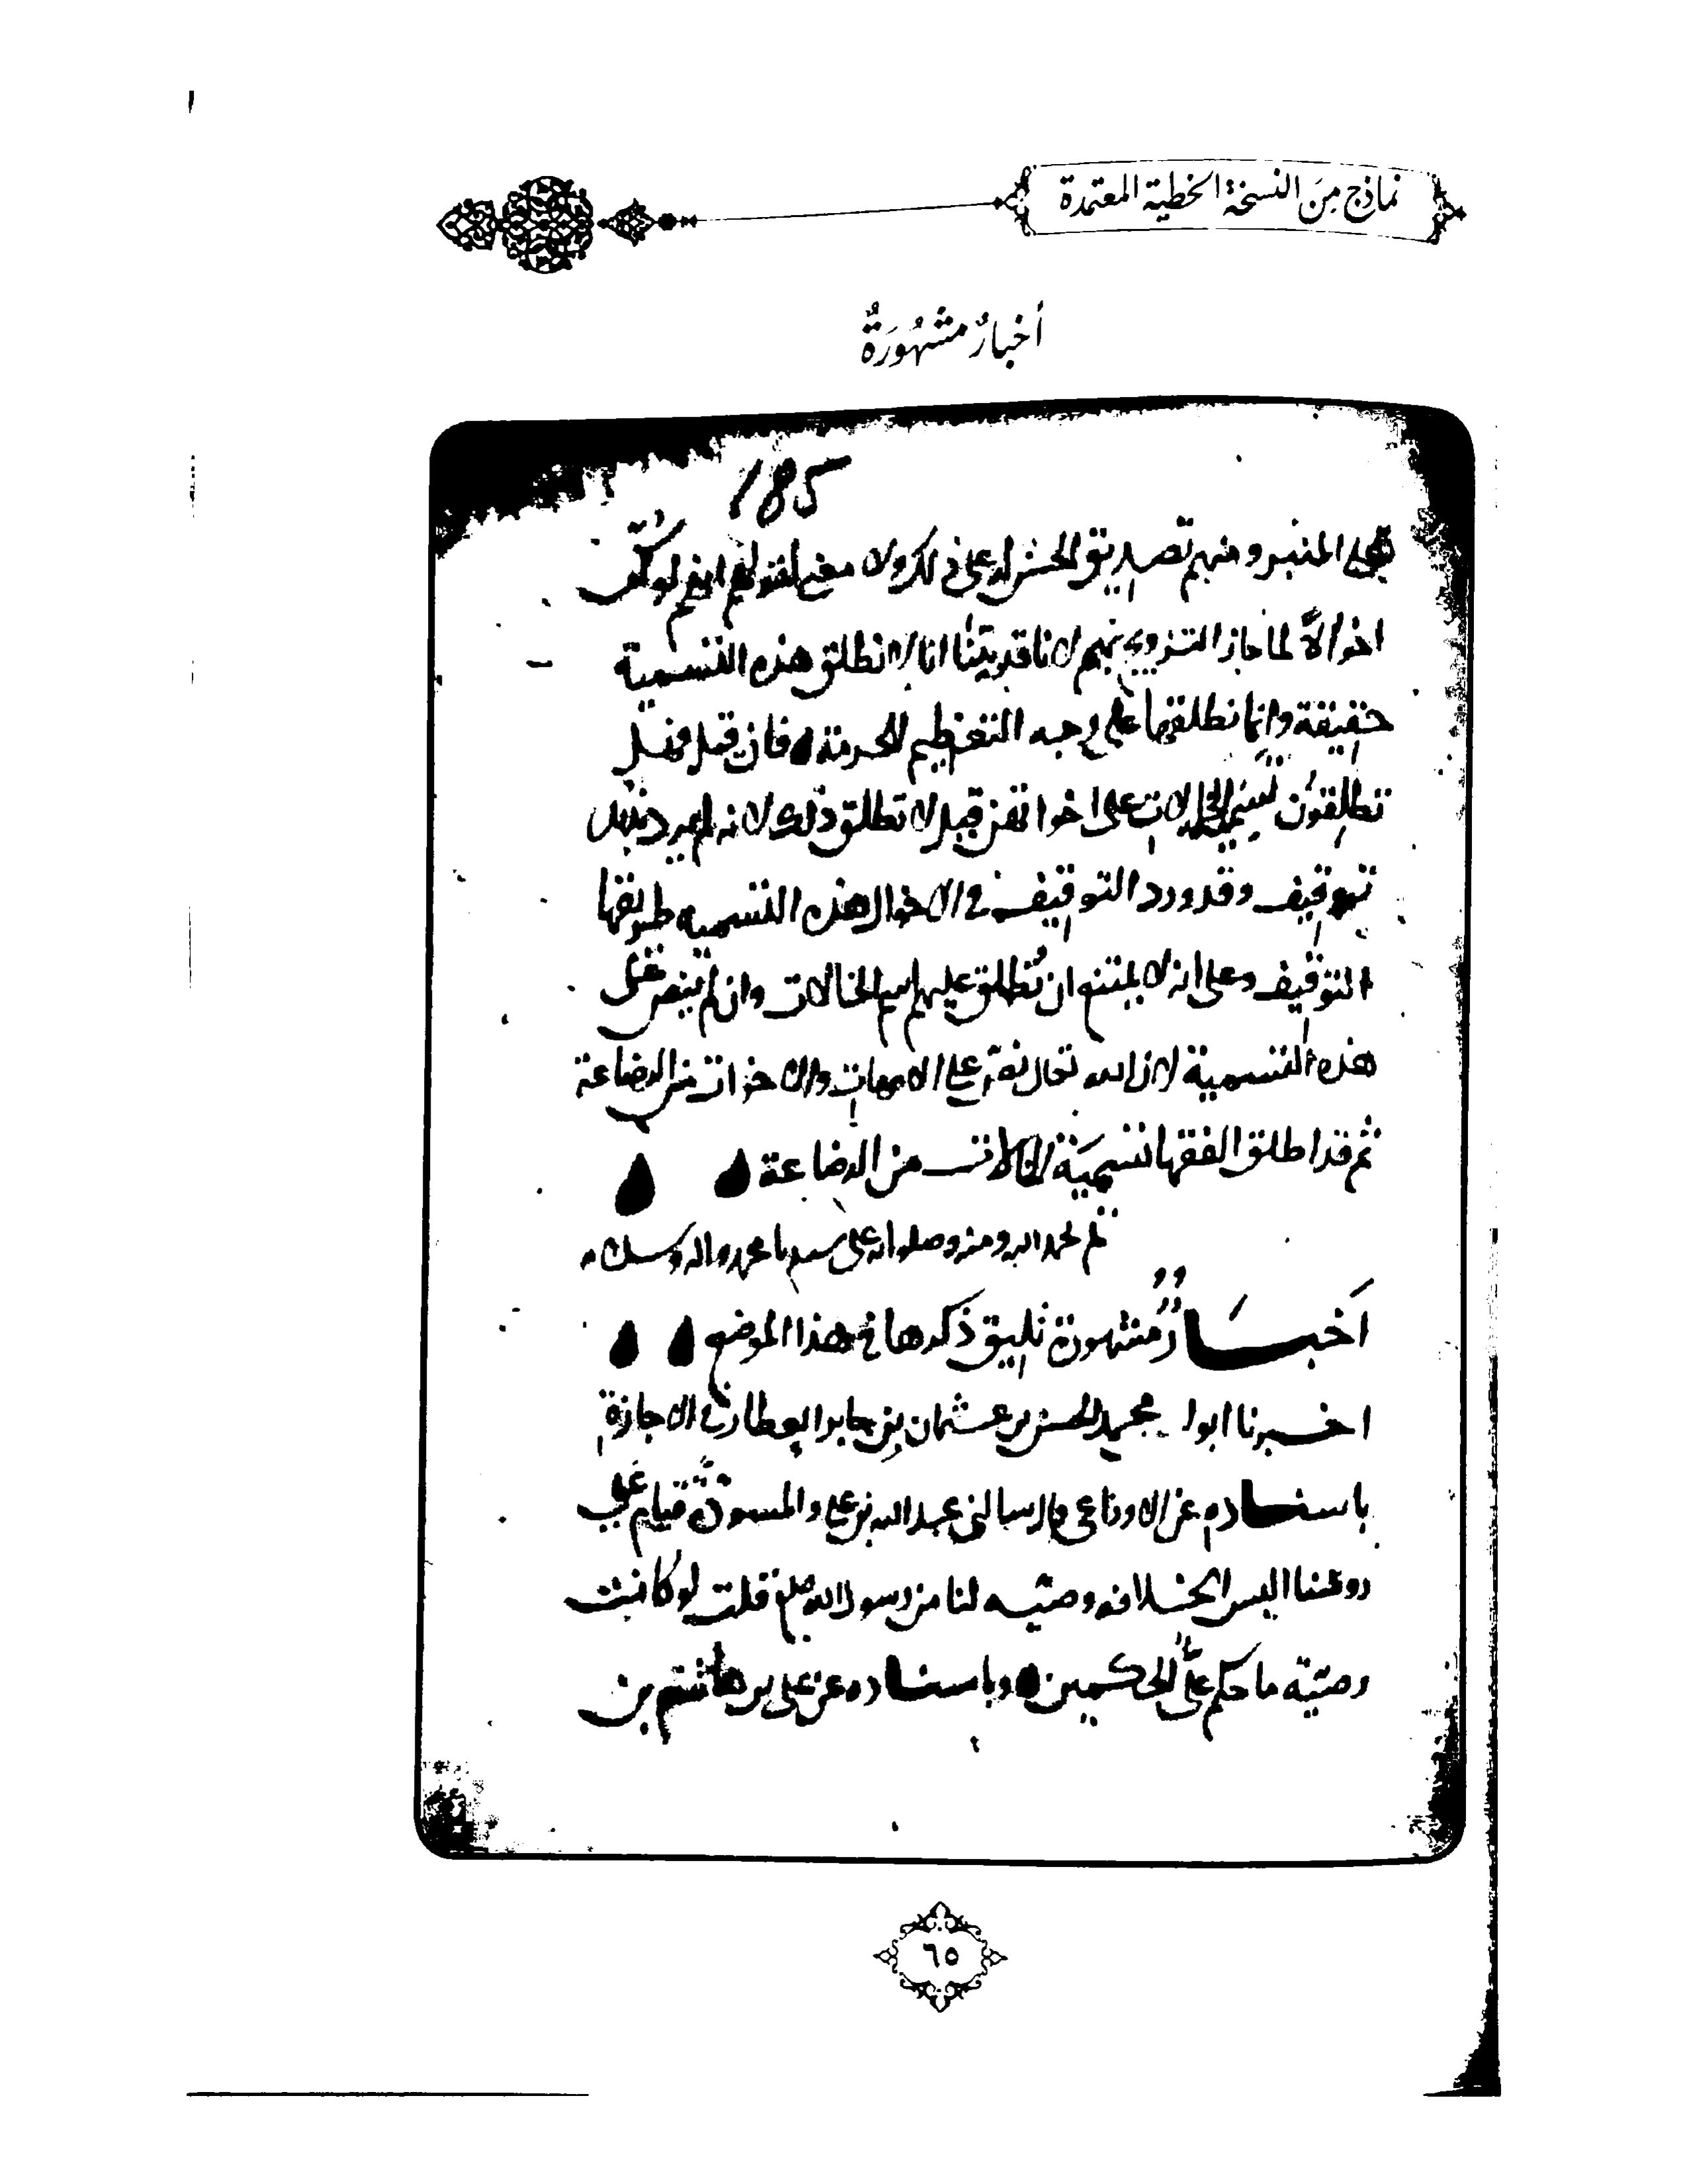 نماذج مِنَ النسخة الخطية المعتمدة
أخبارٌ مشهُورَةٌ
185
على المنبر ومنهم تصديق الحسن له على ذلك ولا معنى لقولهم انهم لو كانوا
اخوالاً لما جاز التزويج بهم لانا قد بيّنّا انا لا نطلق هذه التسمية
حقيقة وانما نطلقها على وجه التعظيم للحرمة فان قيل فهل
تطلقون اسم الخالات على اخواتهن قيل لا نطلق ذلك لانه لم يرد بذلك
توقيف وقد ورد التوقيف في الاخوال وهذه التسمية طريقها
التوقيف وعلى انه لا يمتنع ان نُطلق عليهم اسم الخالات وان لم ينص على
هذه التسمية لان الله تعالى نصّ على الامهات والاخوات من الرضاعة
ثم قد اطلق الفقها تسمية الخالات من الرضاعة
تم بحمد الله ومنه وصلواته على سيدنا محمد واله وسلامه
اَخبَارٌ مشهورة تليق ذكرها في هذا الموضع
اخبرنا ابو محمد الحسن بن عثمان بن جابر العطار في الاجازة
باسناده عن الاوزاعي قال سالني عبد الله بن علي والمسودّة قيام على
روسنا اليس الخلافه وصيّه لنا من رسول الله صلعم قلت لو كانت
وصيّة ما حكم علىّ الحكمين وباسناده عن على بن هاشم بن
٦٥